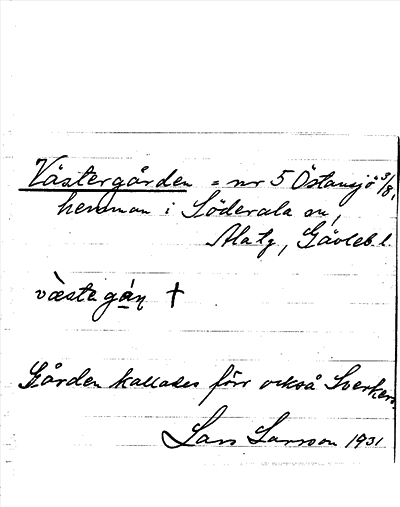 Västergården = nr 5 Östansjö 3/8,
hemman i Söderala sn,
Matg, Gävleb. l.
væ̀stegán †
Gården kallades förr också Sverkers.
Lars Larsson 1931